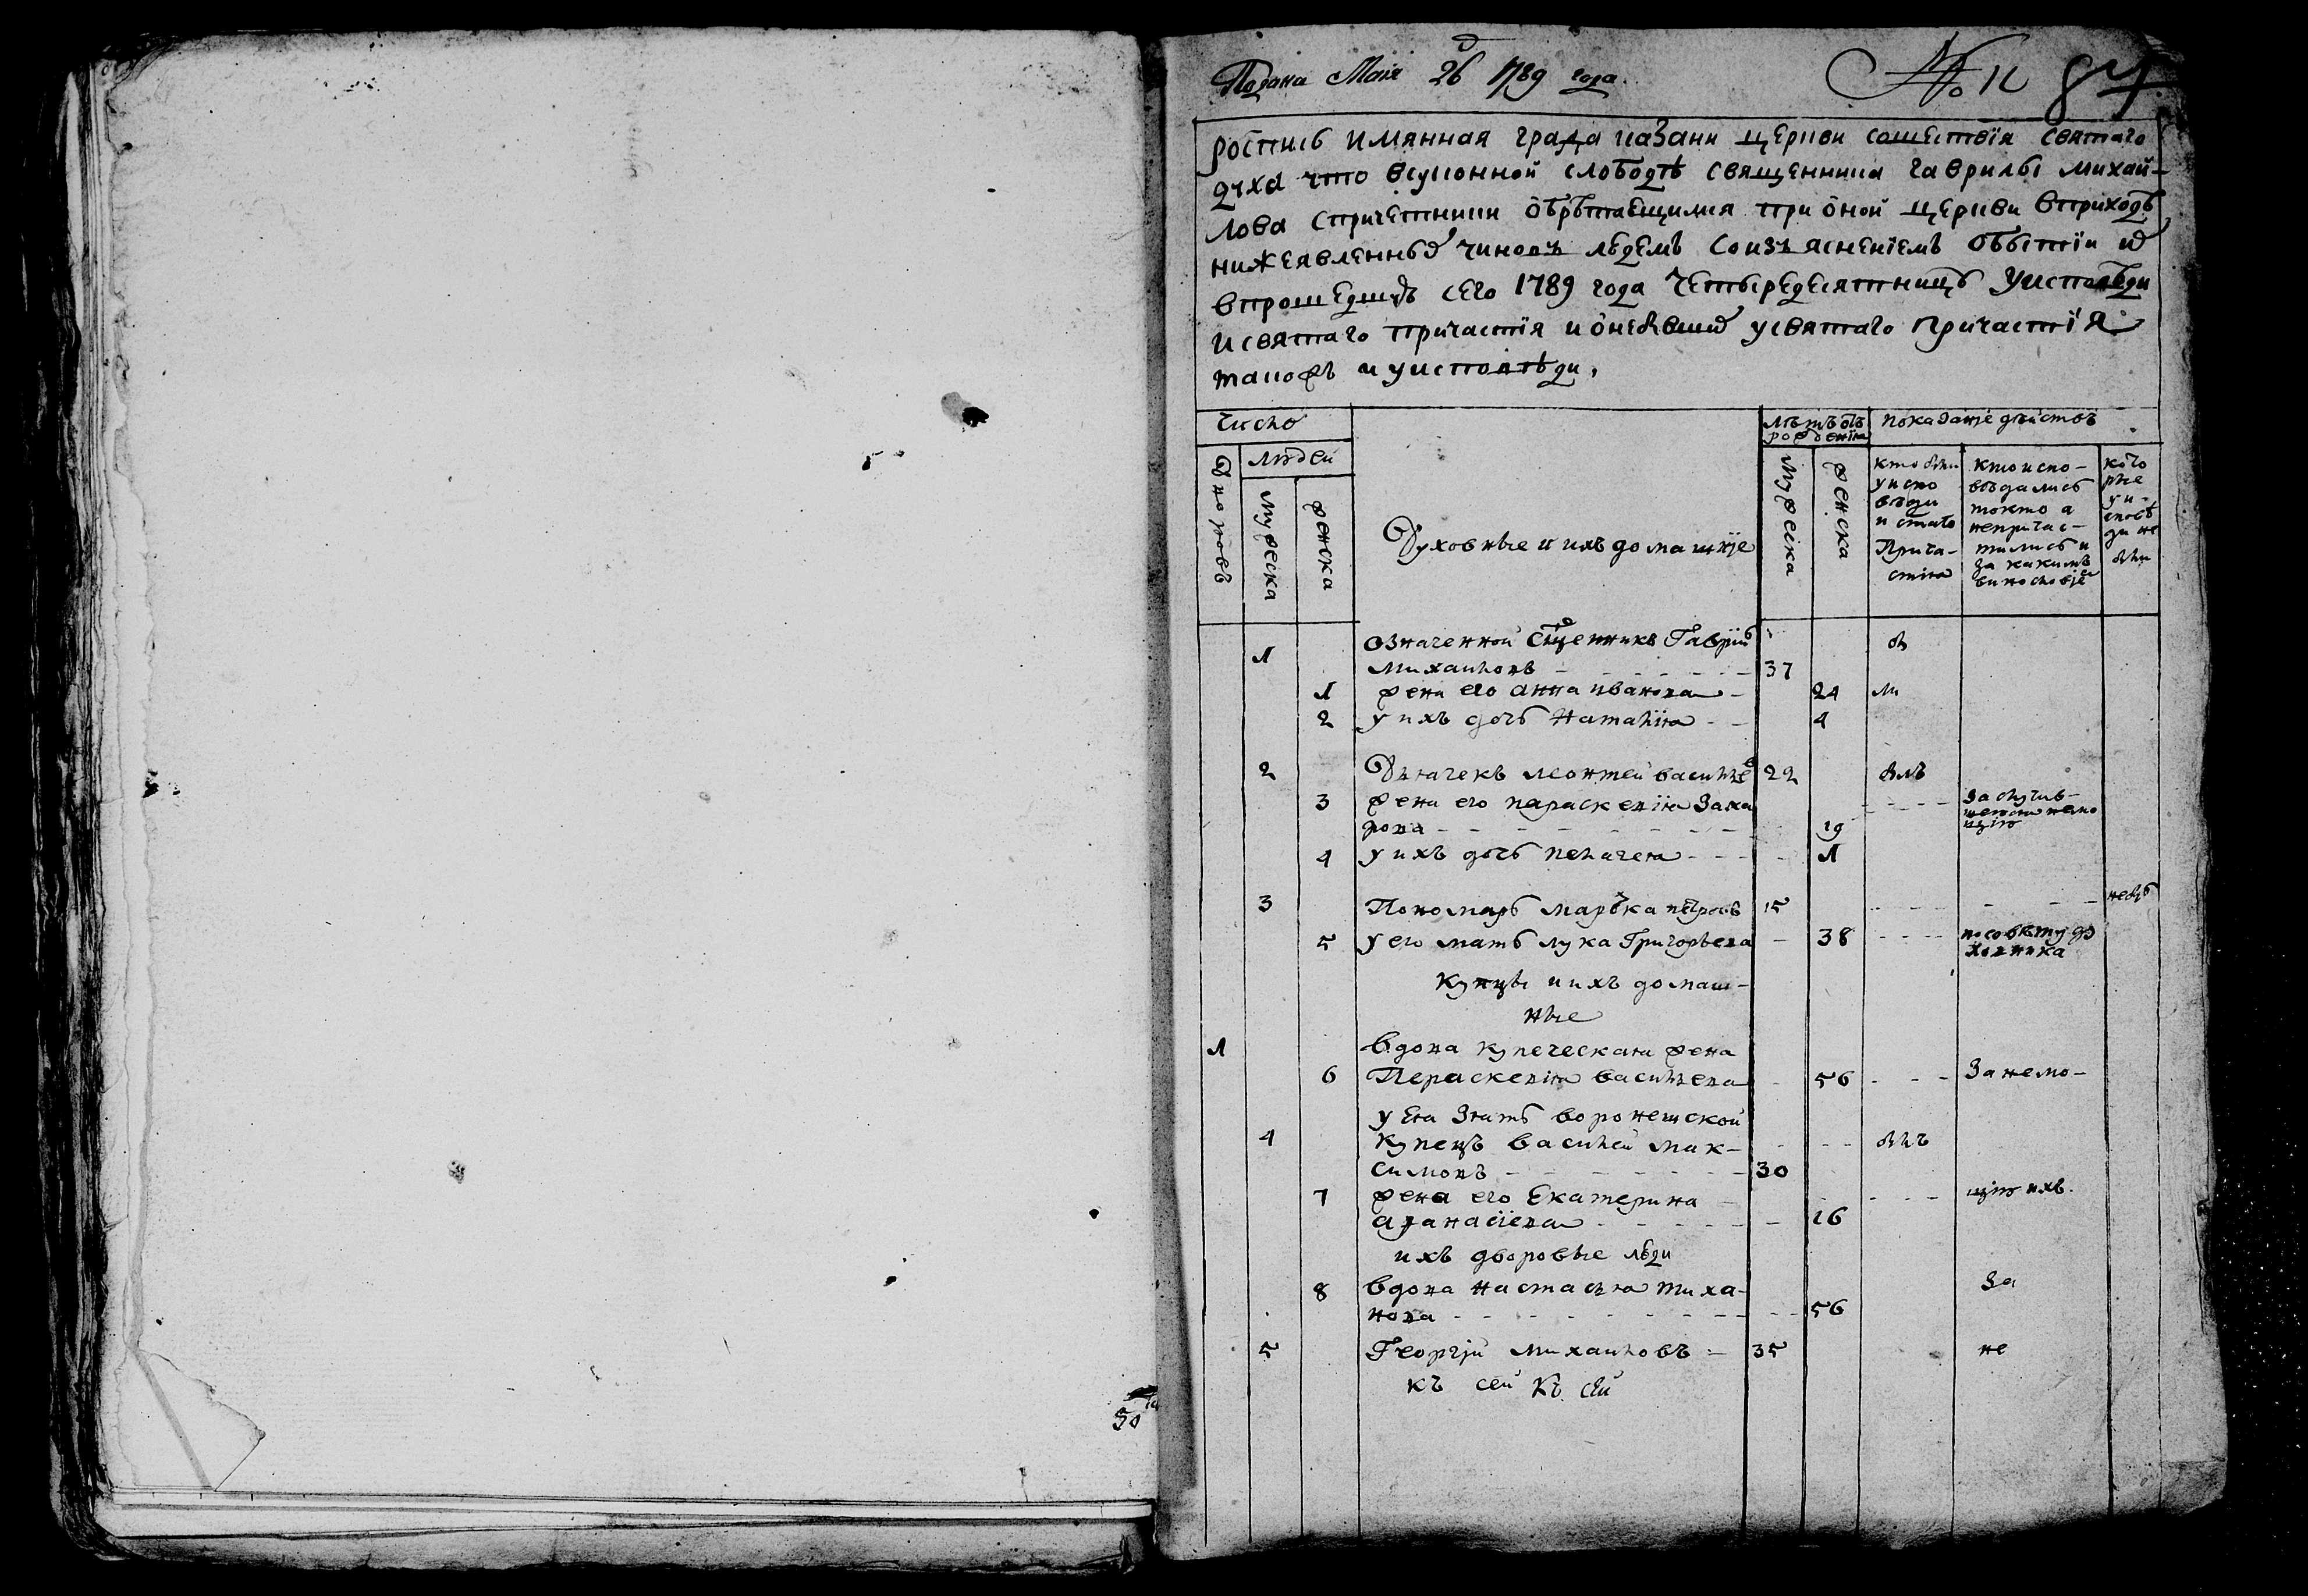 Подана Маия 26 д 1789 года.
№ 12 87
роспись имянная града казани церкви сошествїя святаго
духа что всуконной слободѣ священника гаврилы михай-
лова спричетники обрѣтающимся при оной церкви вприходѣ
нижеявленных чиновъ людемъ соизъясненїемъ обытїи их
впрошедшую сего 1789 года четыредесятницу уисповѣди
исвятаго причастїя и онебывших усвятаго причастїя
такожъ и уисповѣди.
Число
лѣтъ отъ рожденїя
показанїе дѣйствъ
Дворовъ
людей
мужеска
женска
Духовные и ихъ домашнїе
мужеска
женска
кто были
уиспо
вѣди
и стаго
Прича-
стия
кто испо-
вѣдались
токмо а
непричас-
тились и
за какимъ
винословїем
кото
рые
у и-
сповѣ
ди не
были
означенной Сщенникъ Гаврїил
1 Михаиловъ - 37 бы
1 жена его анна иванова - 24 ли
2 у ихъ дочь наталїя - 4
2 Дьячекъ леонтей василье 22 былъ
3 жена его параскевїя Заха
рова - 19 За случив-
шеюся немо
щїю
4 у ихъ дочь пелагея - 1
3 Пономарь марка петровъ 15 - небы
5 у его мать лука Григорьева - 38 - посовѣту ду
ховника
Купцы и ихъ домаш-
ные
1 вдова купеческая жена
6 Пераскевїя васильева - 56 - Занемо-
у Ея Зять воронежской
4 купецъ василей мак- - былъ
симовъ - 30
7 жена его Екатерина - щїю ихъ.
афанасїева - 16
ихъ дворовые люди
8 вдова настасья тиха- За
нова - 56
5 Георгїй михаиловъ - 35 не
къ сей къ сей
50